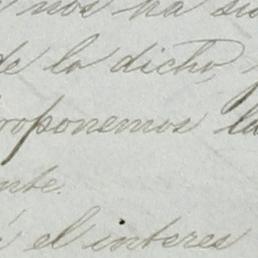 nos ha si
de lo dicho,
proponemos la
nte.
el interes